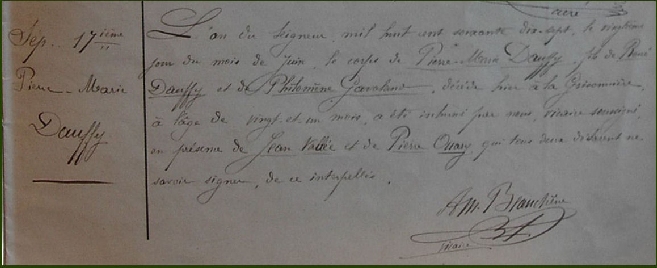 curé
Sép. 17ième
Pierre-Marie
Dauffy
L'an du Seigneur, mil huit cent soixante dix-sept, le vingtième
jour du mois de juin, le corps de Pierre-Marie Dauffy, fils de René
Dauffy et de Philomène, décédé hier à la
à l'âge de vingt et un mois, a été inhumé par nous, vicaire soussigné
en présence de Jean Vallée et de Pierre Ouary, qui tous deux déclarent ne
savoir signer, de ce interpellés.
Am. Branchière
vicaire